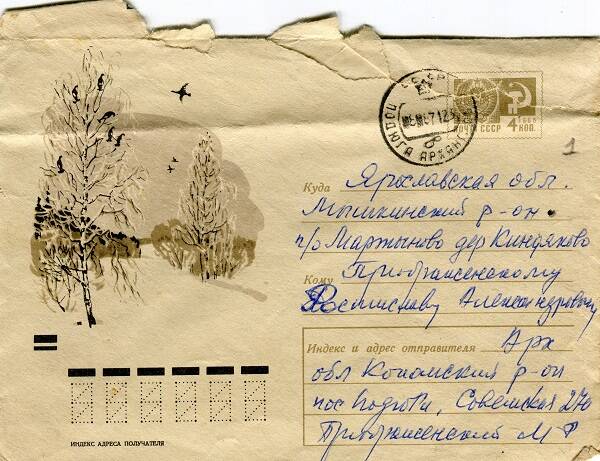 СССР
ПОДЮГА АРХАН
ПОЧТА СССР 4 КОП.
1966
1
Куда Ярославская обл.
Мышкинский р-он
п/о Мартыново дер Киндяково
Кому Приображенскому
Ростиславу Александровичу
Индекс и адрес отправителя Арх
обл Коношский р-он
пос Подюга, Советская 27
Приображенский М Р
ИНДЕКС АДРЕСА ПОЛУЧАТЕЛЯ